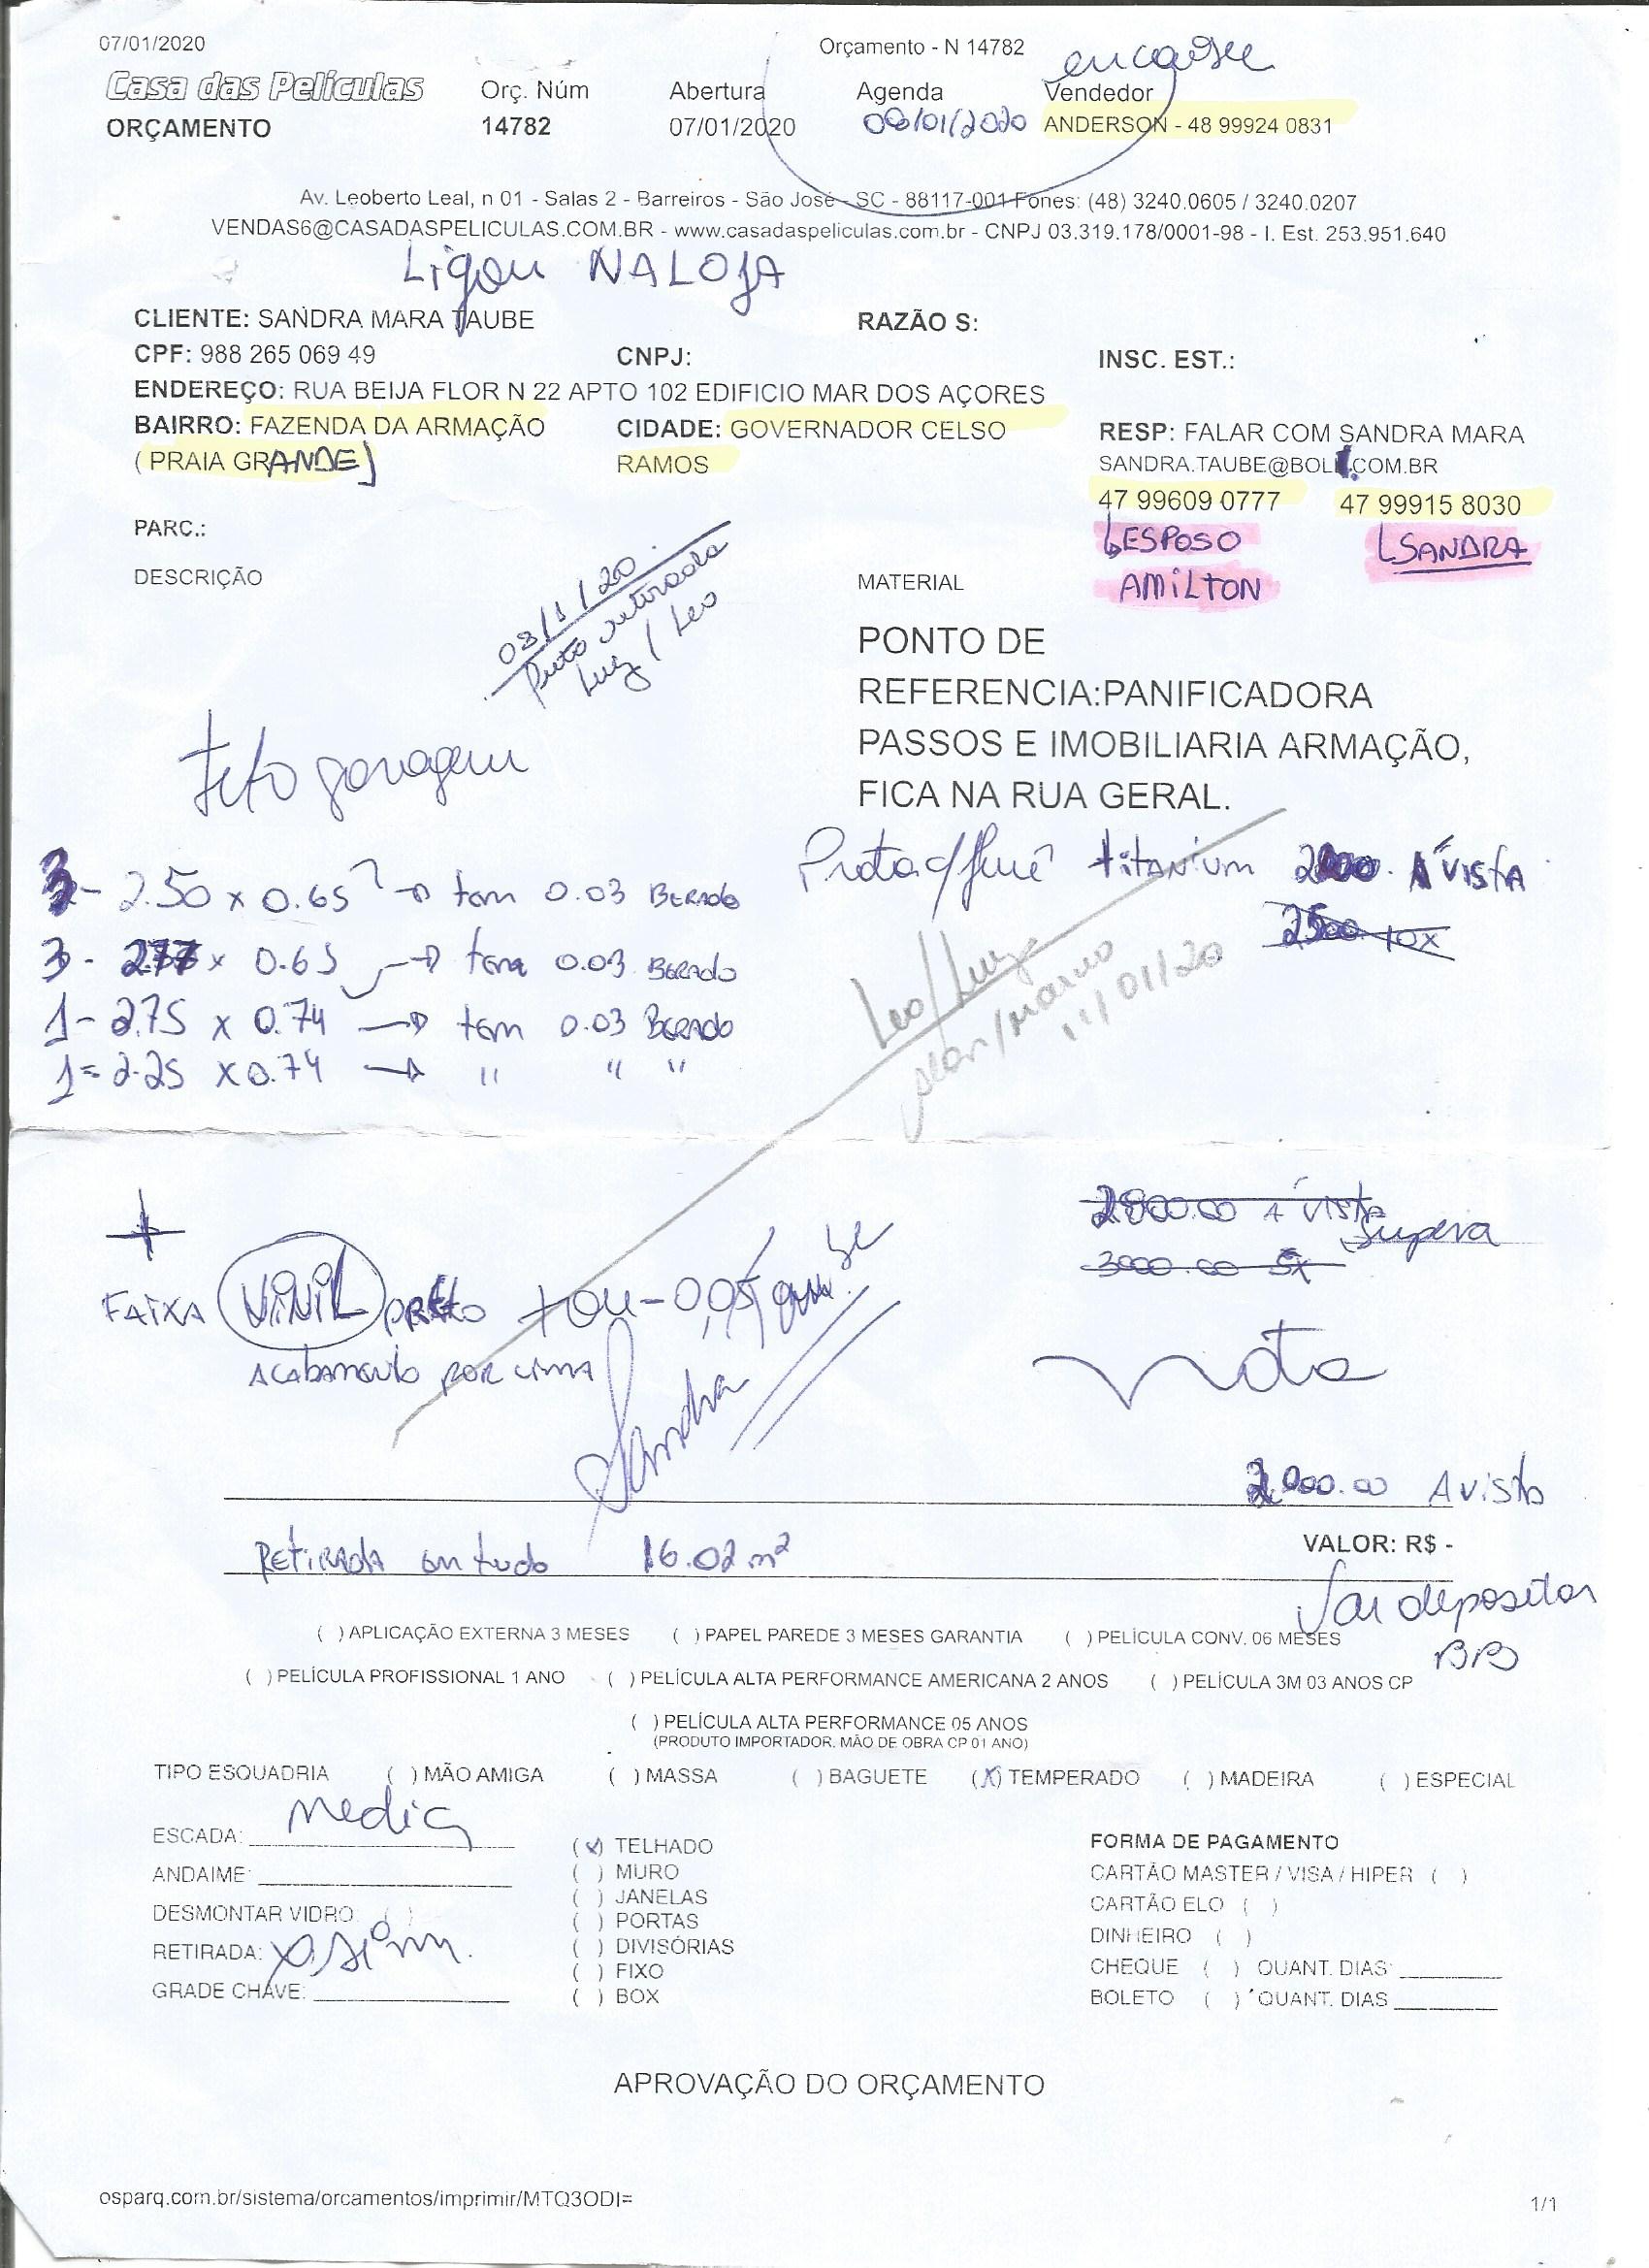 07/01/2020
Orçamento - N 14782
encaixe
Casa das Películas
Orç. Núm
Abertura
Agenda
Vendedor
ORÇAMENTO
14782
07/01/2020
/01/2020
ANDERSON - 48 99924 0831
Av. Leoberto Leal, n 01 - Salas 2 - Barreiros - São José - SC - 88117-001 Fones: (48) 3240.0605 / 3240.0207
VENDAS6@CASADASPELICULAS.COM.BR - www.casadaspeliculas.com.br - CNPJ 03.319.178/0001-98 - I. Est. 253.951.640
Ligou NA LOJA
CLIENTE: SANDRA MARA TAUBE
RAZÃO S:
CPF: 988 265 069 49
CNPJ:
INSC. EST.:
ENDEREÇO: RUA BEIJA FLOR N 22 APTO 102 EDIFICIO MAR DOS AÇORES
BAIRRO: FAZENDA DA ARMAÇÃO
(PRAIA GRANDE)
CIDADE: GOVERNADOR CELSO
RAMOS
RESP: FALAR COM SANDRA MARA
SANDRA.TAUBE@BOL.COM.BR
47 99609 0777
47 99915 8030
ESPOSO
AMILTON
SANDRA
PARC.:
DESCRIÇÃO
MATERIAL
08/1/20
retirada
Luiz / Leo
PONTO DE
REFERENCIA:PANIFICADORA
PASSOS E IMOBILIARIA ARMAÇÃO,
FICA NA RUA GERAL.
teto garagem
Prata c/ fumê titanium 2000. À VISTA
2500. 10x
3 - 2.50 x 0.65 → tem 0.03 BERADO
3 - 2.77 x 0.65 → tem 0.03 BERADO
1 - 2.75 x 0.74 → tem 0.03 BERADO
1 = 2.25 x 0.74 → " " "
Leo/Luiz
11/01/20
2800.00 A VISTA
3000.00 5x
Supera
+
FAIXA VINIL preto + ou - 0,05
ACABAMENTO POR CIMA
Sandra
Nota
2.000.00 A vista
RETIRADA em tudo 16.02 m²
VALOR: R$ -
Vai depositar
BB
( ) APLICAÇÃO EXTERNA 3 MESES ( ) PAPEL PAREDE 3 MESES GARANTIA ( ) PELÍCULA CONV. 06 MESES
( ) PELÍCULA PROFISSIONAL 1 ANO ( ) PELÍCULA ALTA PERFORMANCE AMERICANA 2 ANOS ( ) PELÍCULA 3M 03 ANOS CP
( ) PELÍCULA ALTA PERFORMANCE 05 ANOS
(PRODUTO IMPORTADOR. MÃO DE OBRA CP 01 ANO)
TIPO ESQUADRIA ( ) MÃO AMIGA ( ) MASSA ( ) BAGUETE (X) TEMPERADO ( ) MADEIRA ( ) ESPECIAL
ESCADA: Media
ANDAIME:
DESMONTAR VIDRO ( )
RETIRADA: X sim.
GRADE CHAVE:
(x) TELHADO
( ) MURO
( ) JANELAS
( ) PORTAS
( ) DIVISÓRIAS
( ) FIXO
( ) BOX
FORMA DE PAGAMENTO
CARTÃO MASTER / VISA / HIPER ( )
CARTÃO ELO ( )
DINHEIRO ( )
CHEQUE ( ) QUANT. DIAS:
BOLETO ( ) QUANT. DIAS
APROVAÇÃO DO ORÇAMENTO
osparq.com.br/sistema/orcamentos/imprimir/MTQ3ODI=
1/1